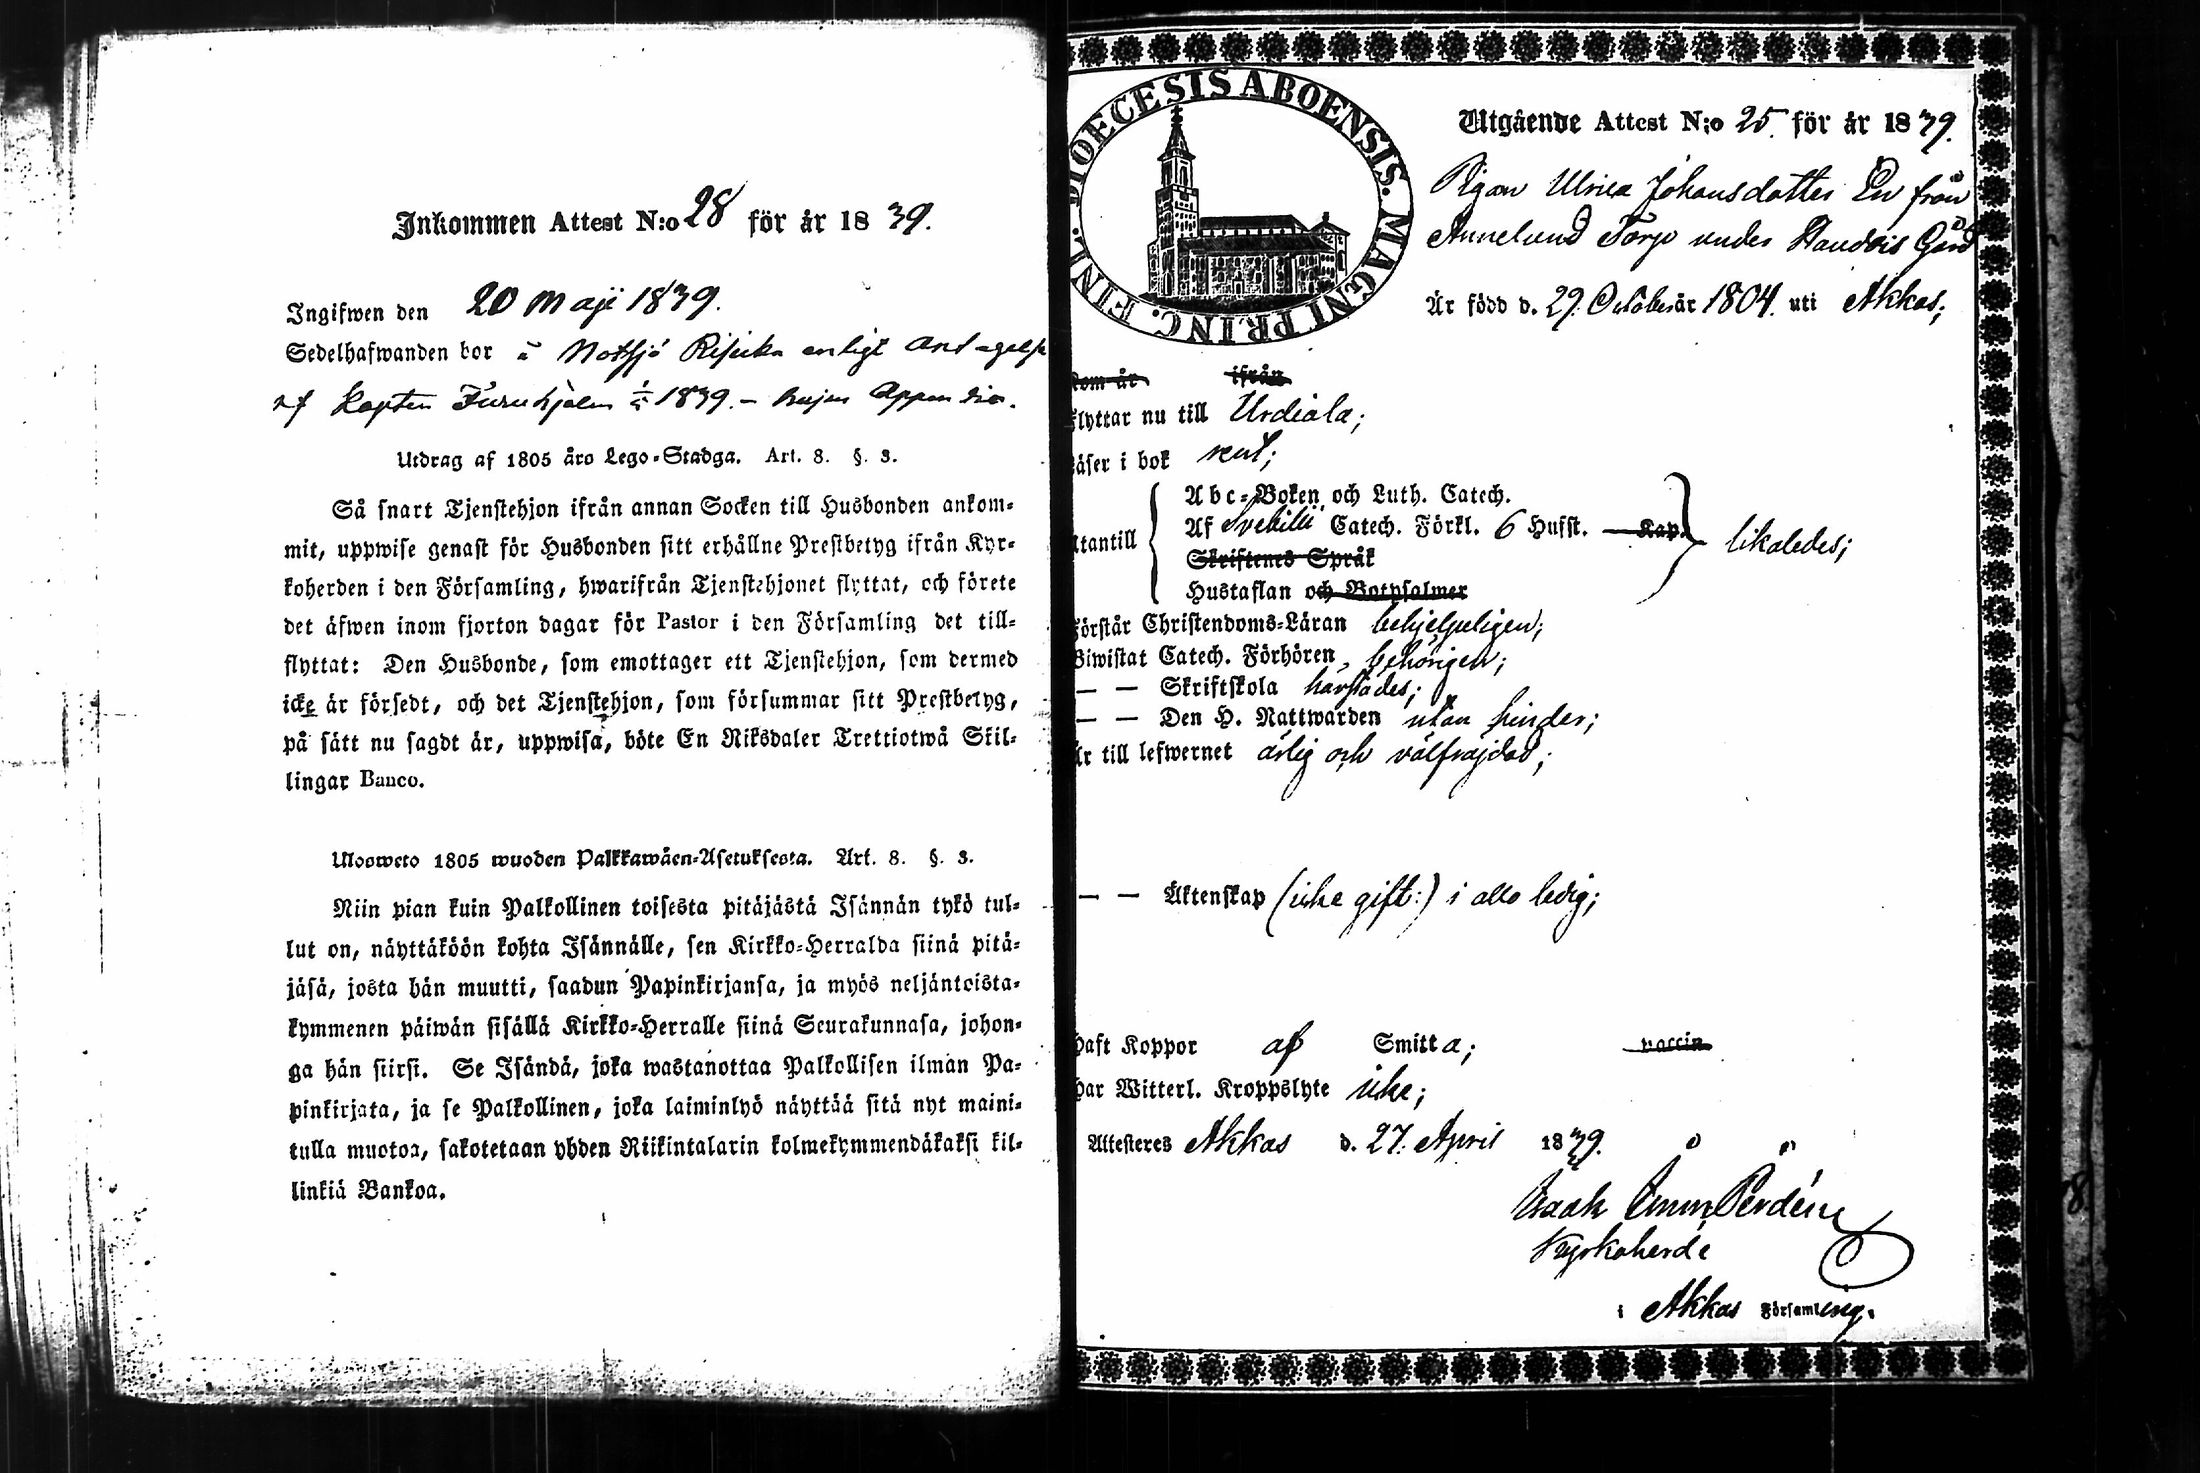 Inkommen Attest N:o 28 för år 1839.
Ingifwen den 20 Maji 1839.
Sedelhafwanden bor å Notsjö enligt
af Kapten Furuhjelm 1839. –
Utdrag af 1805 åro Lego-Stadga. Art. 8. §. 3.
Så snart Tjenstehjon ifrån annan Socken till Husbonden ankom-
mit, uppwise genast för Husbonden sitt erhållne Prestbetyg ifrån Kyr-
koherden i den Församling, hwarifrån Tjenstehjonet flyttat, och förete
det äfwen inom fjorton dagar för Pastor i den Församling det till-
flyttat: Den Husbonde, som emottager ett Tjenstehjon, som dermed
icke är försedt, och det Tjenstehjon, som försummar sitt Prestbetyg,
på sätt nu sagdt är, uppwisa, böte En Riksdaler Trettiotwå Skil-
lingar Banco.
Uloosweto 1805 wuoden Palkkawäen-Asetuksesta. Art. 8. §. 3.
Niin pian kuin Palkollinen toisesta pitäjästä Isännän tykö tul-
lut on, näyttäköön kohta Isännälle, sen Kirkko-Herralda siinä pitä-
jäsä, josta hän muutti, saadun Papinkirjansa, ja myös neljäntoista-
kymmenen päiwän sisällä Kirkko-Herralle siinä Seurakunnasa, johon-
ga hän siirsi. Se Isändä, joka wastanottaa Palkollisen ilman Pa-
pinkirjata, ja se Palkollinen, joka laiminlyö näyttää sitä nyt maini-
tulla muotoa, sakotetaan yhden Riikintalarin kolmekymmendäkaksi kil-
linkiä Bankoa.
DIOECESIS ABOENSIS. MAGNI PRINC. FINL.
Utgående Attest N:o 25. för år 1839.
Pigan Ulrica Johansdotter En från
Annelund Torp under Haudois Gård
Är född d. 29. October år 1804. uti Akkas;
kom år ifrån
flyttar nu till Urdiala;
läser i bok rent;
utantill
Abc-Boken och Luth. Catech.
Af Svebilii Catech. Förkl. 6 Hufst. — Kap.
Skriftenes Språk
Hustaflan och Botpsalmer
likaledes;
förstår Christendoms-Läran behjelpeligen;
Biwistat Catech. Förhören, behörigen;
— — Skriftskola härstädes;
— — Den H. Nattwarden utan hinder;
Är till lefwernet ärlig och välfräjdad;
— — Äktenskap (icke gift:) i allo ledig;
haft Koppor af Smitta; vaccin
har Witterl. Kroppslyte icke;
Attesteres Akkas d. 27. April 1839.
Isaak Emm Perdén
Kyrkoherde
i Akkas Församling.